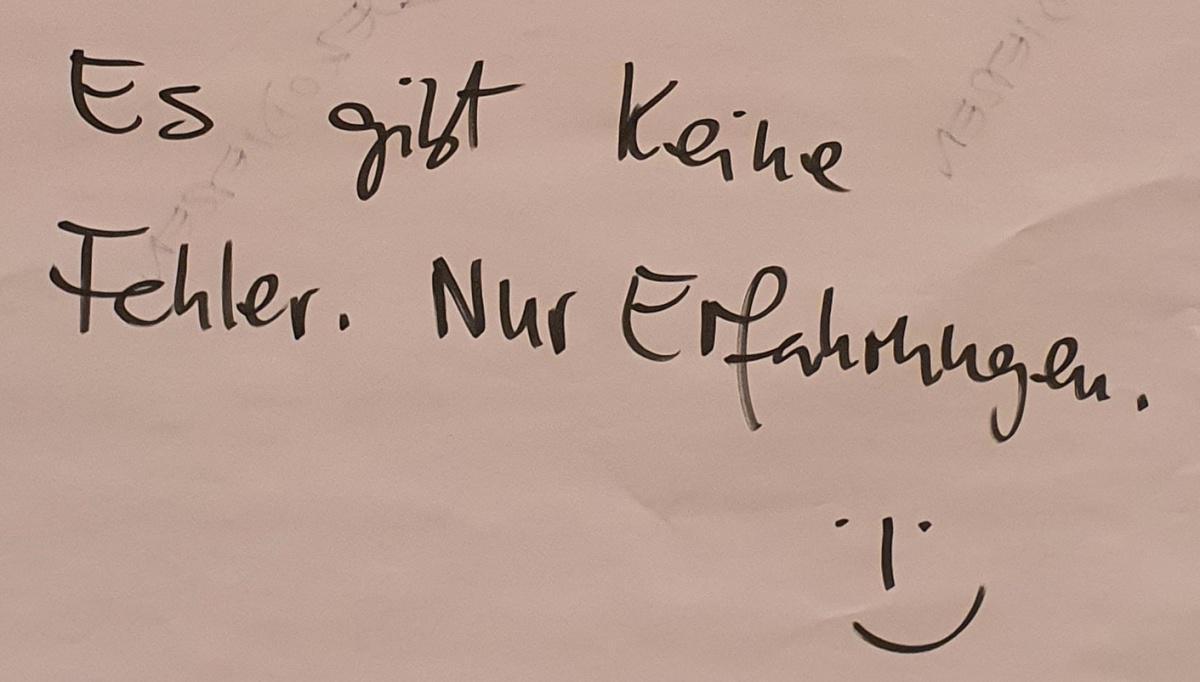 Es gibt keine
Fehler. Nur Erfahrungen.